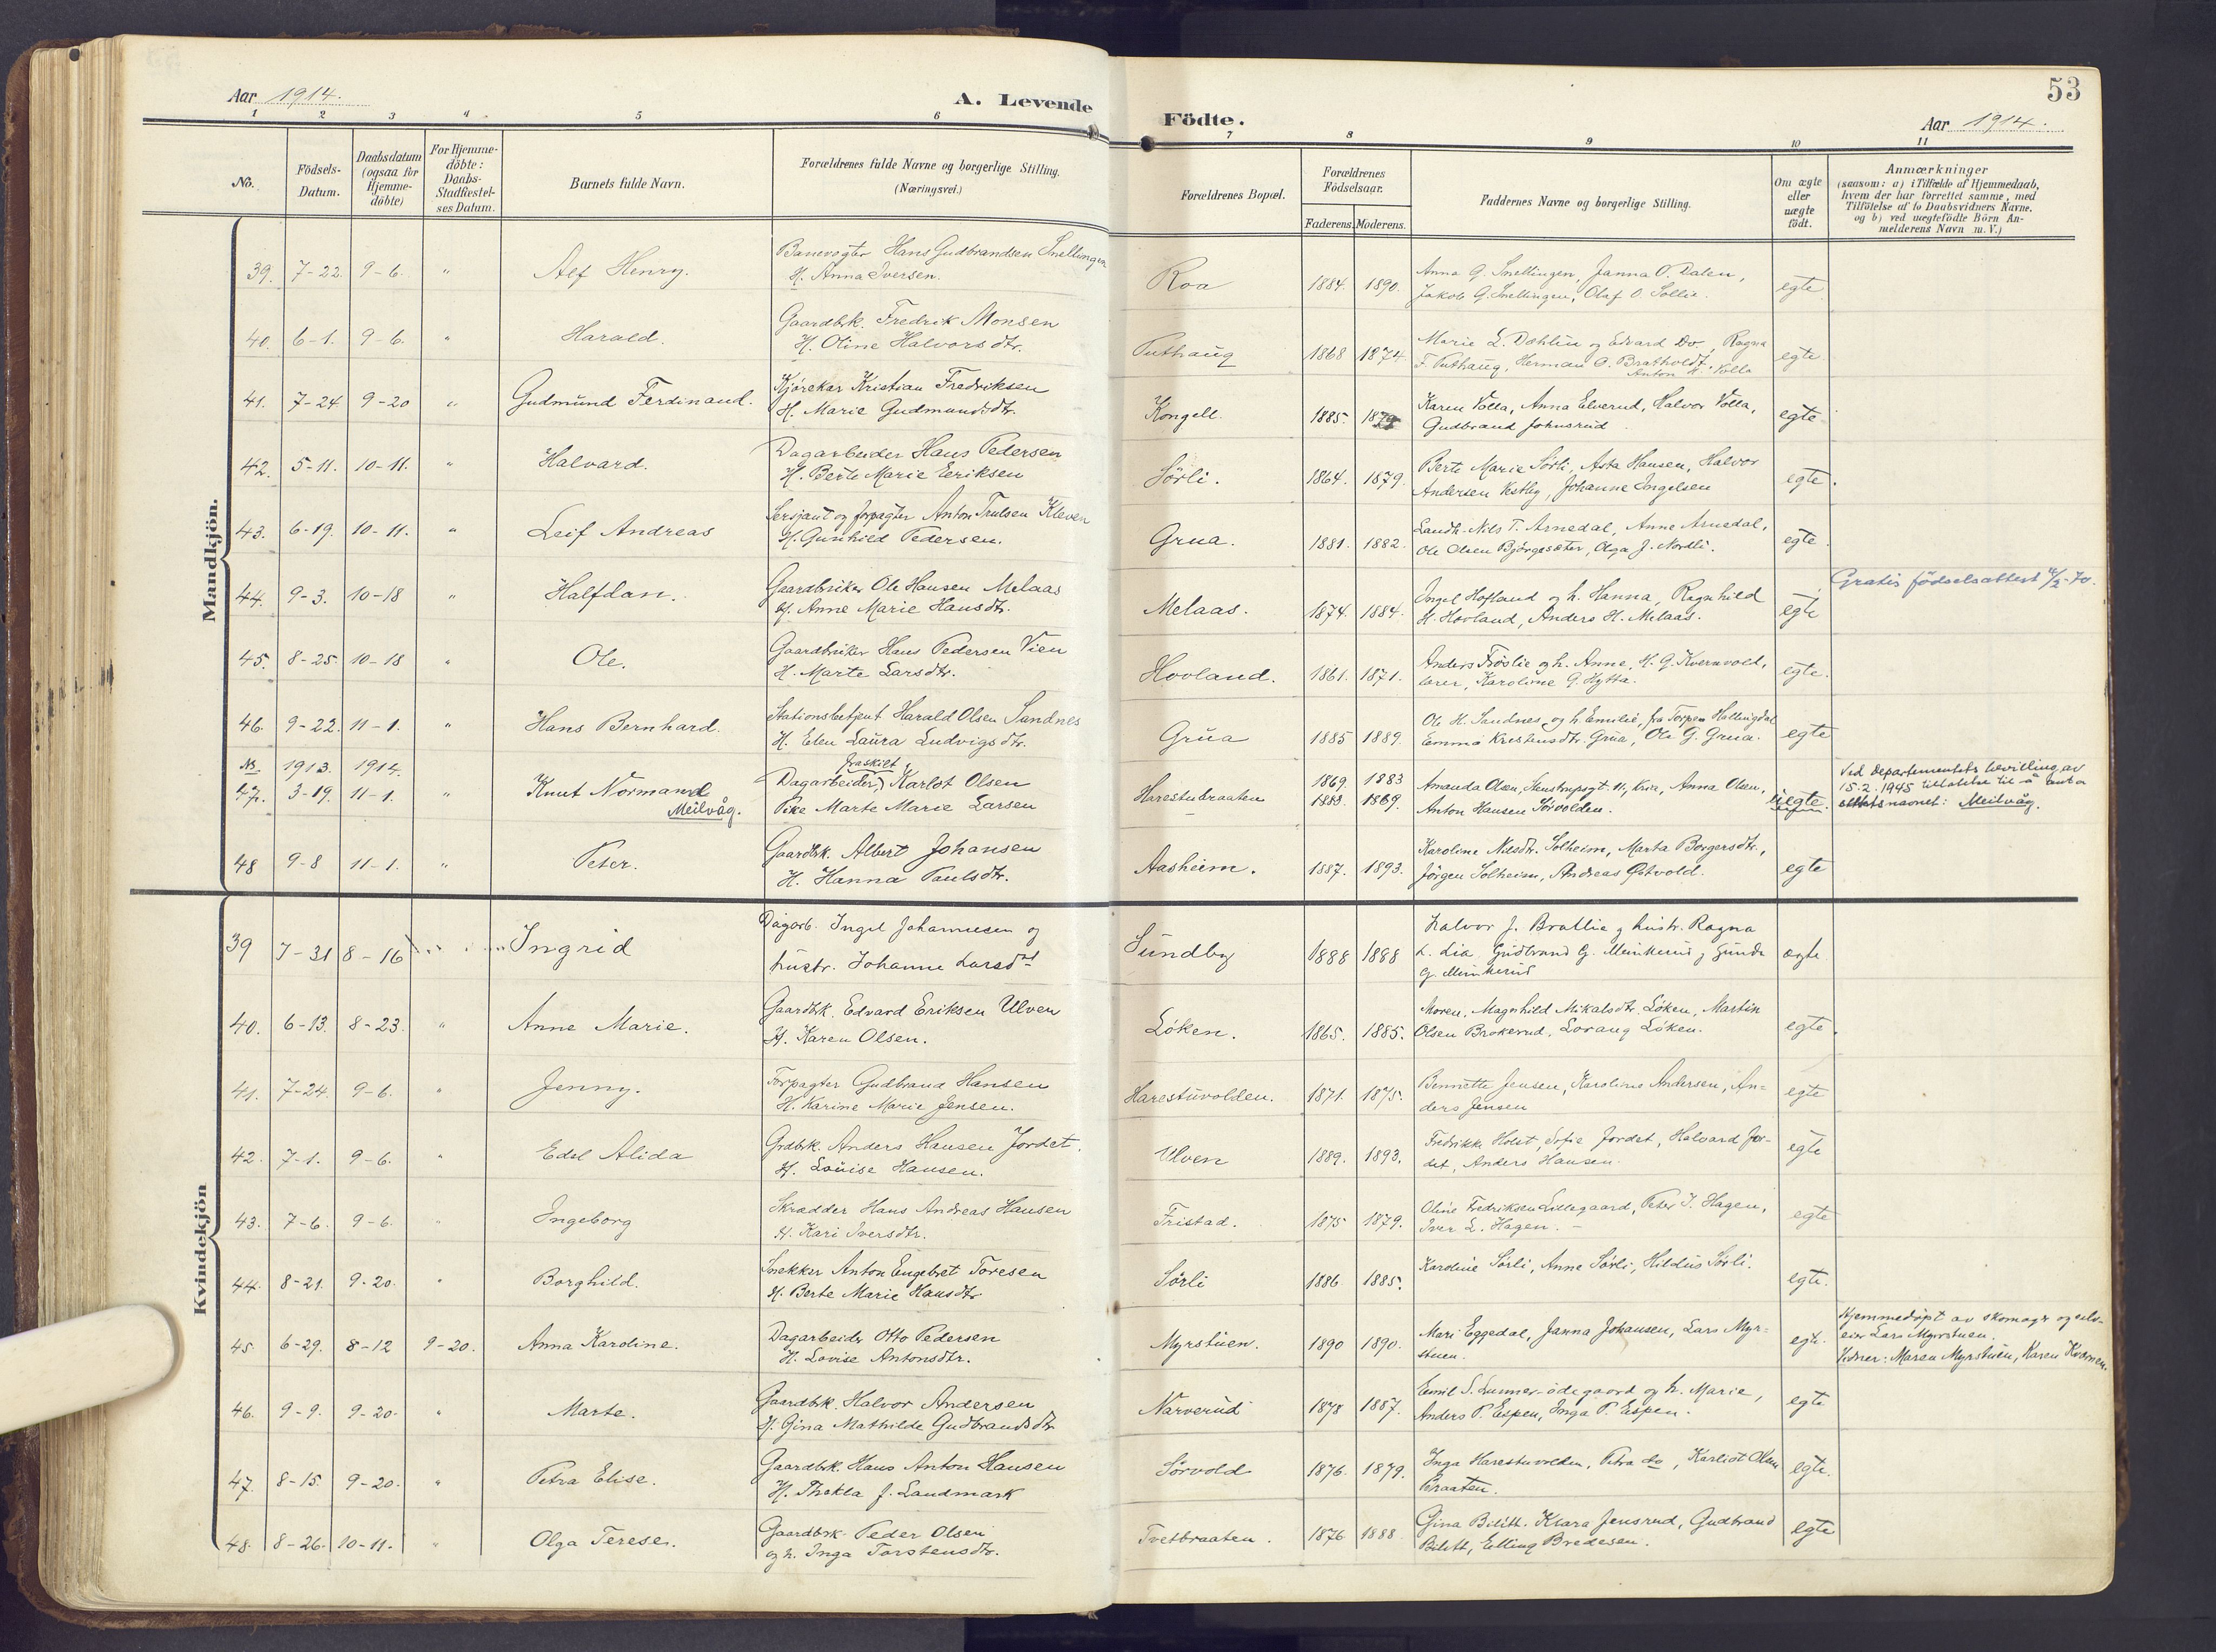 53
Aar 1914. A. Levende Födte. Aar 1914.
1 2 3 4 5 6 7 8 9 10 11
No.
Födsels-Datum.
Daabsdatum (ogsaa for Hjemme-döbte)
For Hjemme-döbte: Daabs-Stadfæstel-ses Datum.
Barnets fulde Navn.
Forældrenes fulde Navne og borgerlige Stilling.
(Næringsvei.)
Forældrenes Bopæl.
Forældrenes Födselsaar.
Faderens. Moderens.
Faddernes Navne og borgerlige Stilling.
Om ægte eller uægte födt.
Anmærkninger
(saasom: a) i Tilfælde af Hjemmedaab,
hvem der har forrettet samme, med
Tilföielse af to Daabsvidners Navne.
og b) ved uægtefödte Börn An-
melderens Navn m. V.)
Mandkjön.
39. 7-22. 9-6. " Alf Henry. Banevogter Hans Gudbrandsen Snellingen
H. Anna Iversen. Roa 1884. 1890. Anna G. Snellingen, Janna O. Dalen,
Jakob G. Snellingen, Olaf O. Sollie. egte
40. 6-1. 9-6. " Harald. Gaardbrk. Fredrik Monsen
H. Oline Halvorsdtr. Puthaug 1868 1874 Marie L. Dæhlin og Edvard Do., Ragna
F. Puthaug, Herman O. Bratholdt, egte
Anton H. Volla
41. 7-24 9-20 " Gudmund Ferdinand. Kjörekar Kristian Fredriksen
H. Marie Gudmundsdtr. Kongell. 1885. Karen Volla, Anna Elverud, Halvor Volla,
Gudbrand Johnsrud egte
42. 5-11. 10-11. " Halvard. Dagarbeider Hans Pedersen
H. Berte Marie Eriksen Sörli. 1864. 1879. Berte Marie Sörli, Asta Hansen, Halvor
Andersen Vestby, Johanne Ingelsen egte.
43. 6-19. 10-11. " Leif Andreas Sersjant og forpagter Anton Trulsen Kleven
H. Gunhild Pedersen. Grua. 1881. 1882. Landh. Nils T. Arnedal, Anne Arnedal,
Ole Olsen Bjørgesæter, Olga J. Nordli. egte.
44. 9-3. 10-18 " Halfdan. Gaardbruker Ole Hansen Melaas
H. Anne Marie Hansdtr. Melaas. 1874. 1884. Ingel Hofland og h. Hanna, Ragnhild
H. Hovland, Anders H. Melaas. egte Gratis födselsattest
45. 8-25. 10-18 " Ole. Gaardbruker Hans Pedersen Vien
H. Marte Larsdtr. Hovland. 1861. 1871. Anders Fröslie og h. Anne, H. G. Kvernvold,
lærer, Karoline G. Hytta. egte.
46. 9-22. 11-1. " Hans Bernhard. Stationsbetjent Harald Olsen Sandnes
H. Elen Laura Ludvigsdtr. Grua 1885 1889. Ole H. Sandnes og h. Emilie, fra Torpen Hallingdal
Emma Kristensdtr. Grua, Ole G. Grua. egte
No. 1913. 1914. fraskilt
47. 3-19. 11-1. " Knut Normand Dagarbeider Karlot Olsen
Meilvåg. Pike Marte Marie Larsen Harestubraaten 1869. 1883
1883. 1869. Amanda Olsen, Anna Olsen,
Anton Hansen Sörvolden. uegte. Ved departementets bevilling av
15.2.1945 tillatelse til å anta
slektsnavnet: Meilvåg.
48 9-8 11-1. " Peter. Gaardbrk. Albert Johansen
H. Hanna Paulsdtr. Aasheim. 1887. 1893. Karoline Nilsdtr. Solheim, Marta Borgersdtr.,
Jörgen Solheim, Andreas Østvold. egte
Kvindekjön
39 7-31 8-16 " Ingrid Dagarb. Ingel Johannesen og
hustr. Johanne Larsdt Sundby 1888 1888 Halvor J. Brattlie g hustr. Ragna
L. Lia Gudbrand G. Munkerud g Gunda
G. Munkerud ægte
40. 6-13. 8-23. " Anne Marie. Gaardbk. Edvard Eriksen Ulven
H. Karen Olsen. Löken. 1865. 1885. Moren, Magnhild Mikalsdtr. Löken, Martin
Olsen Brokerud, Lorang Löken. egte.
41. 7-24. 9-6. " Jenny. Forpagter Gudbrand Hansen
H. Karine Marie Jensen. Harestuvolden. 1871. 1875. Bennette Jensen, Karoline Andersen, An-
ders Jensen egte
42. 7-1. 9-6. " Edel Alida Grdbk. Anders Hansen Jordet.
H. Louise Hansen. Ulven 1889. 1893. Fredrikke Holst, Sofie Jordet, Halvard Jor-
det, Anders Hansen. egte
43. 7-6. 9-6. " Ingeborg Skrædder Hans Andreas Hansen
H. Kari Iversdtr. Fristad. 1875 1879. Oline Fredriksen Lillegaard, Peter I. Hagen,
Iver L. Hagen. — egte
44. 8-21. 9-20. " Borghild. Snekker Anton Engebret Toresen
H. Berte Marie Hansdtr Sörli 1886. 1885. Karoline Sörli, Anne Sörli, Hildus Sörli. egte.
45. 6-29. 8-12 9-20. Anna Karoline. Dagarbeider Otto Pedersen
H. Lovise Antonsdtr. Myrstuen. 1890 1890. Mari Eggedal, Janna Johansen, Lars Myr-
stuen. egte. Hjemmedöpt av skomager og selv-
eier Lars Myrstuen.
Vidner: Maren Myrstuen, Karen Kværnen.
46. 9-9. 9-20. " Marte. Gaardbk. Halvor Andersen
H. Gina Mathilde Gudbrandsdtr Narverud 1878 1887. Emil S. Lunner-ödegaard og h. Marie,
Anders P. Espen, Inga P. Espen. egte
47. 8-15. 9-20. " Petra Elise. Gaardbrk. Hans Anton Hansen
H. Thekla J. Landmark Sörvold 1876. 1879. Inga Harestuvolden, Petra do, Karliot Olsen
Braaten. egte.
48. 8-26. 10-11. " Olga Terese. Gaardbrk. Peder Olsen
og h. Inga Torstensdtr. Tvetbraaten. 1876 1888 Gina Bilitt. Klara Jensrud, Gudbrand
Bilitt, Elling Bredesen. egte